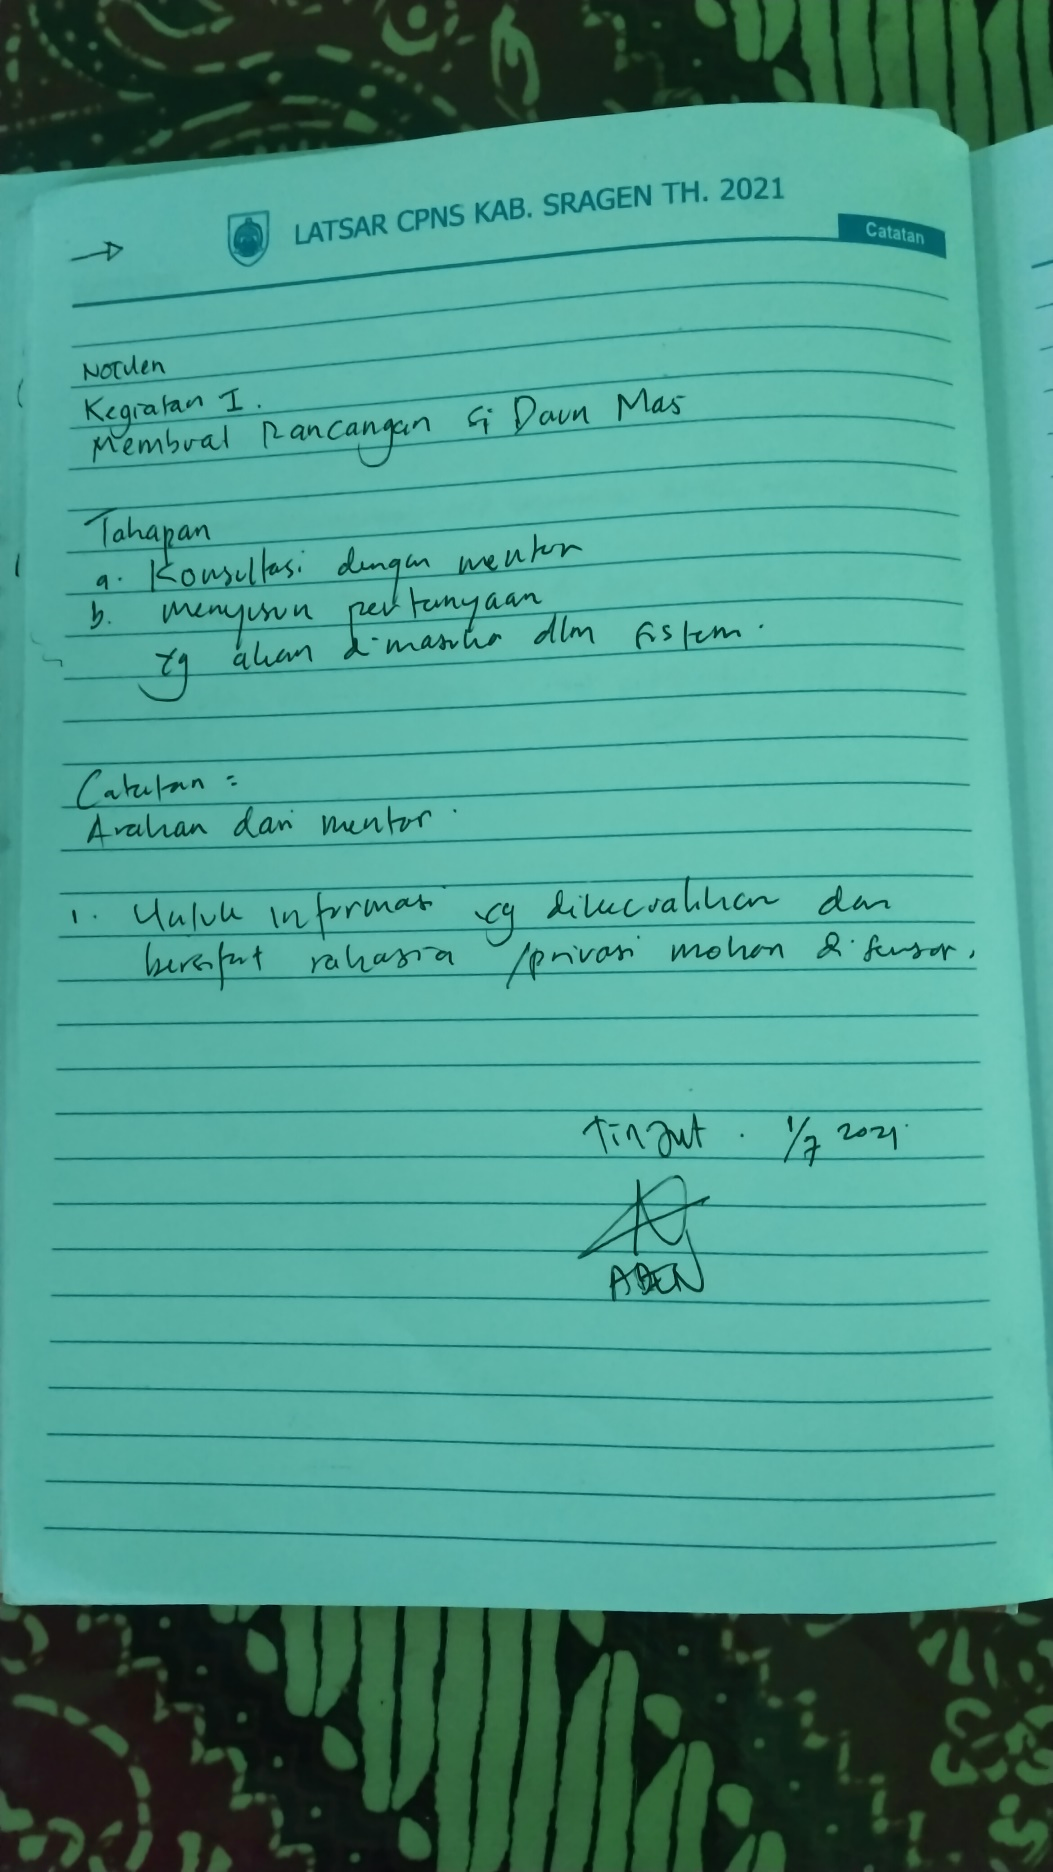 LATSAR CPNS KAB. SRAGEN TH. 2021
Catatan
Notulen
Kegiatan I.
Membuat Rancangan Si Daun Mas
Tahapan
a. Konsultasi dengan mentor
b. menyusun pertanyaan
yg akan dimasukan dlm sistem.
Catatan =
Arahan dari mentor.
1. Untuk informasi yg dikecualikan dan
bersifat rahasia /privasi mohon di sensor.
1/7 2021